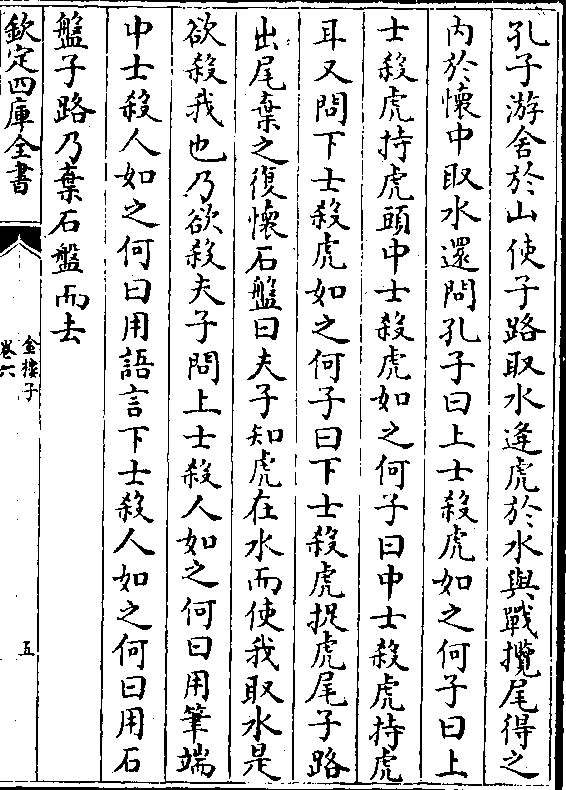 孔子游舍於山使子路取水逢虎於水與戰攬尾得之
内於懷中取水還問孔子曰上士殺虎如之何子曰上
士殺虎持虎頭中士殺虎如之何子曰中士殺虎持虎
耳又問下士殺虎如之何子曰下士殺虎捉虎尾子路
出尾棄之復懷石盤曰夫子知虎在水而使我取水是
欲殺我也乃欲殺夫子問上士殺人如之何曰用筆端
中士殺人如之何曰用語言下士殺人如之何曰用石
盤子路乃棄石盤而去
欽定四庫全書
金樓子
卷六
五